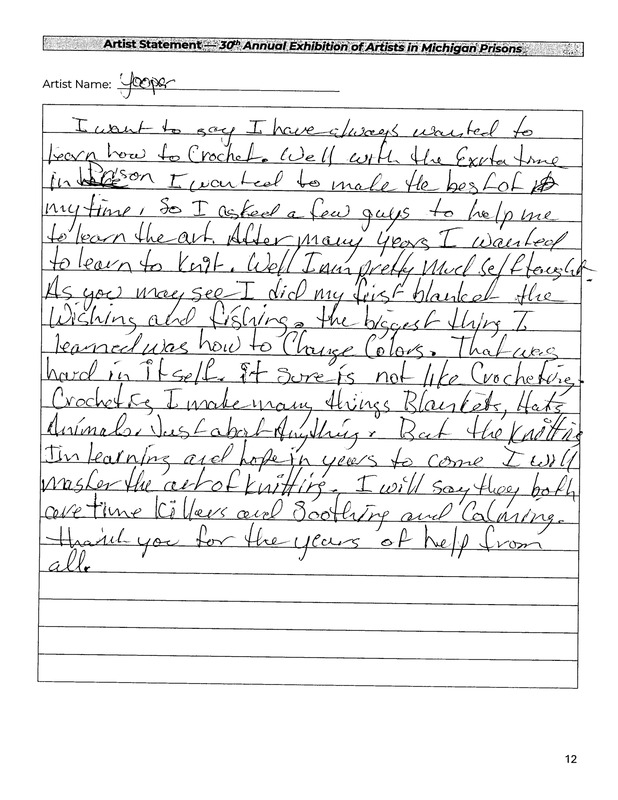 Artist Statement — 30th Annual Exhibition of Artists in Michigan Prisons
Artist Name: Yooper
I want to say I have always wanted to
learn how to Crochet. Well with the Exrta time
in Prison I wanted to make the best of
my time, So I asked a few guys to help me
to learn the art. After many years I wanted
to learn to Knit. Well I am pretty Much self taught.
As you may see I did my first blanket the
Wishing and fishing. the biggest thing I
learned was how to Change Colors. That was
hard in itself. it Sure is not like Crocheting.
Crocheting I make many things Blankets, Hats
Animals. Just about Anything. But the Knitting
Im learning and hope in years to come I will
master the art of Knitting. I will say they both
are time Killers and Soothing and Calming.
thank you for the years of help from
all.
12